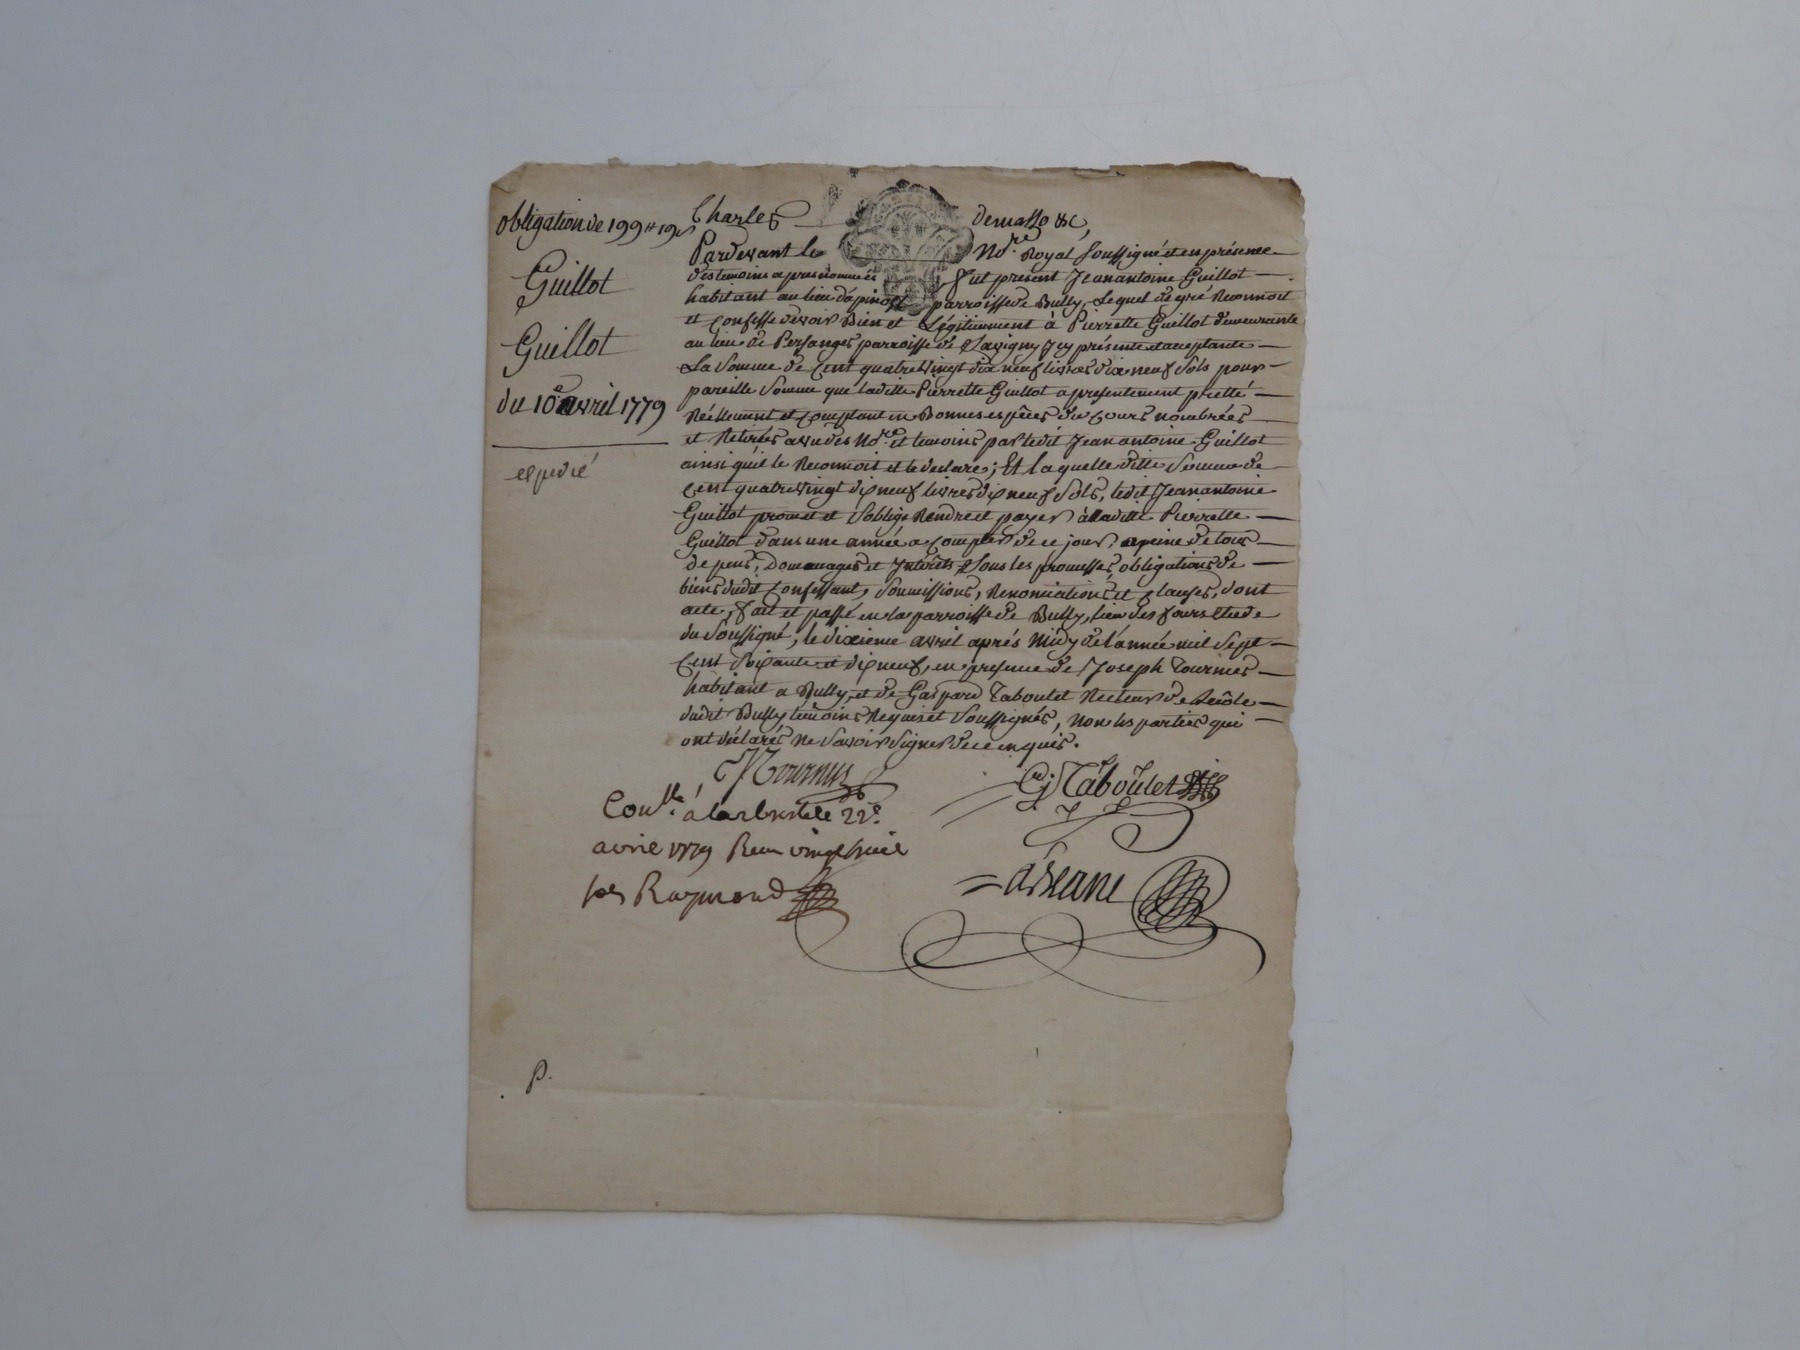 obligation de 199 ₶ 19 s
Guillot
Guillot
du 10e avril 1779
expedié
Charles demasso &c,
Pardevant le Nore. Royal soussigné et en présence
des temoins apres nommés fut present Jean antoine Guillot
habitant au lieu d'apinost parroisse de Bully, Lequel de gré Reconnoit
et Confesse devoir Bien et Légitimement à Pierrette Guillot demeurante
au lieu de Persanges parroisse de Savigny Icy présente et acceptante
La Somme de Cent quatre vingt dix neuf livres dix neuf sols pour
pareille Somme que laditte Pierrette Guillot a presentement pretté
Réellement et Comptant en Bonnes espêces du Cours nombrées
et Retirées a vu des Nore. et temoins par ledit Jean antoine Guillot
ainsi qu'il le Reconnoit et le declare; Et laquelle ditte Somme de
Cent quatre vingt dix neuf livres dix neuf sols, ledit Jean antoine
Guillot promet et s'oblige Rendre et payer à laditte Pierrette
Guillot dans une année a Compter de ce jour, a peine de tous
depens, dommages et Intérêts, sous les promesses obligations de
biens dudit Confessant, soumissions, Renonciations et Clauses, dont
acte, fait et passé en la parroisse de Bully, lieu des fours Etude
du Soussigné, le dixieme avril aprés Midy de l'année mil Sept
Cent soixante et dix neuf, en presence de Joseph Tournus
habitant a Bully, et de Gaspard Taboulet Recteur d'Ecôle
dudit Bully temoins Requis et Soussignés, Non les parties qui
ont déclarés Ne Savoir Signer de ce enquis.
J Tournus
G Taboulet
Conlle. à larbresle le 22e.
avril 1779 Reçu vingt huit
sols Raymond
P.